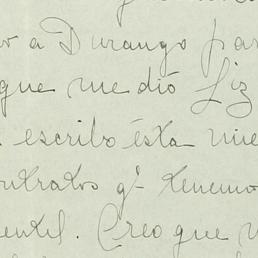 a Durango par
que me dió Liz
escribo ésta mie
ntratos q' tenemo
ental. Creo que